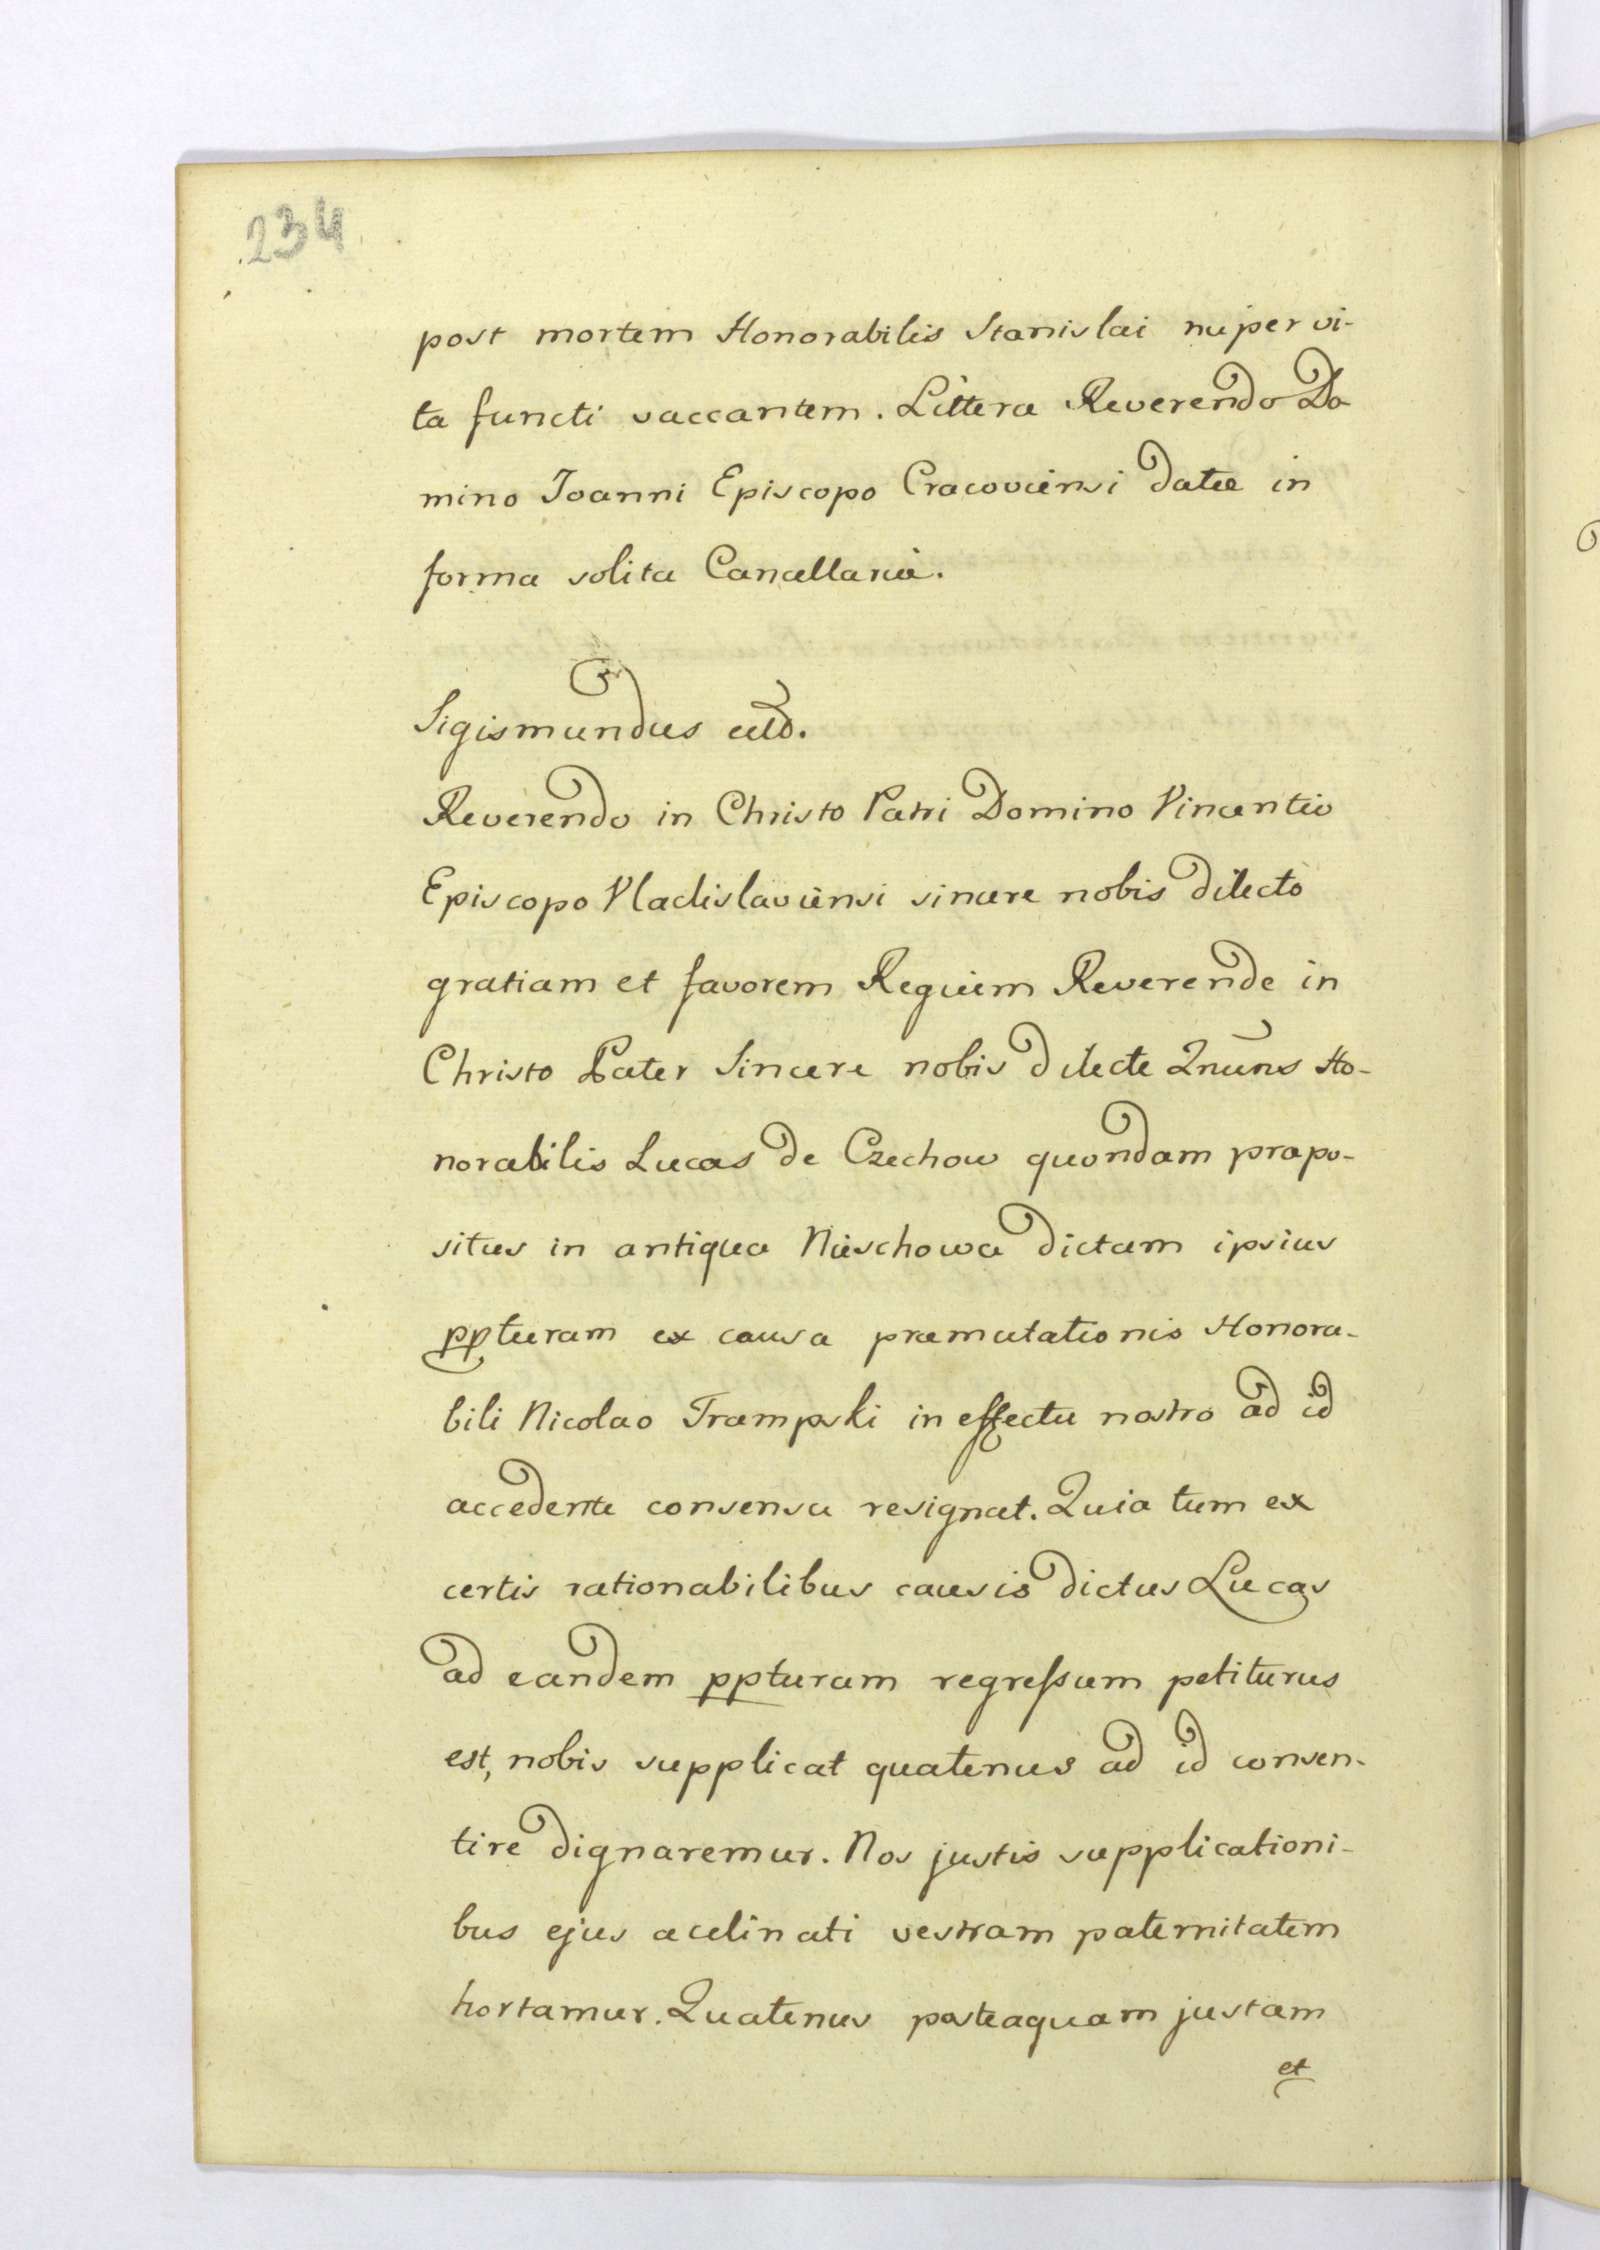 234
post mortem Honorabilis Stanislai nuper vi-
ta functi vaccantem. Littera Reverendo Do
mino Joanni Episcopo Cracoviensi datæ in
forma solita Cancellariæ.
Sigismundus
Reverendo in Christo Patri Domino Vincentio
Episcopo Vladislaviensi sincere nobis dilecto
gratiam et favorem Regium Reverende in
Christo Pater Sincere nobis dilecte Ho-
norabilis Lucas de Czechow quondam præpo-
situs in antiqua Nieschowa dictam ipsius
ppturam ex causa præmutationis Honora-
bili Nicolao Trampski in effectu nostro ad id
accedente consensu resignat. Quia tum ex
certis rationabilibus causis dictus Lucas
ad eandem ppturam regressum petiturus
est, nobis supplicat quatenus ad id consen-
tire dignaremur. Nos justis supplicationi-
bus ejus aclinati vestram paternitatem
hortamur. Quatenus posteaquam justam
et